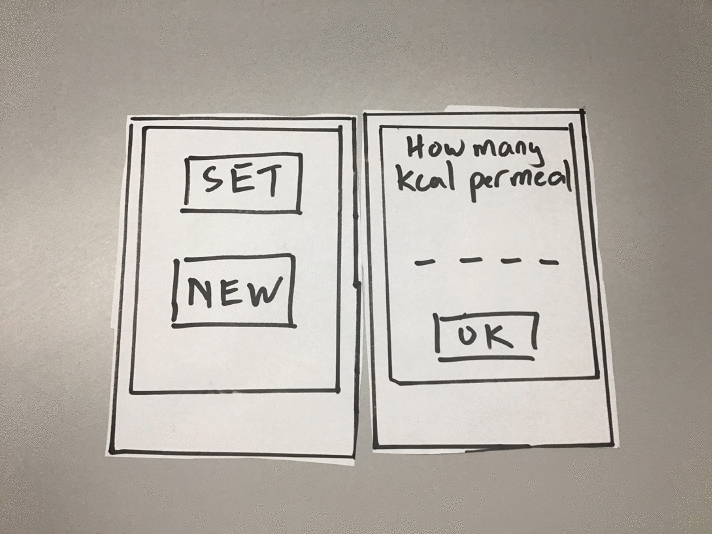 SET
NEW
How many
kcal per meal
_ _ _ _
OK